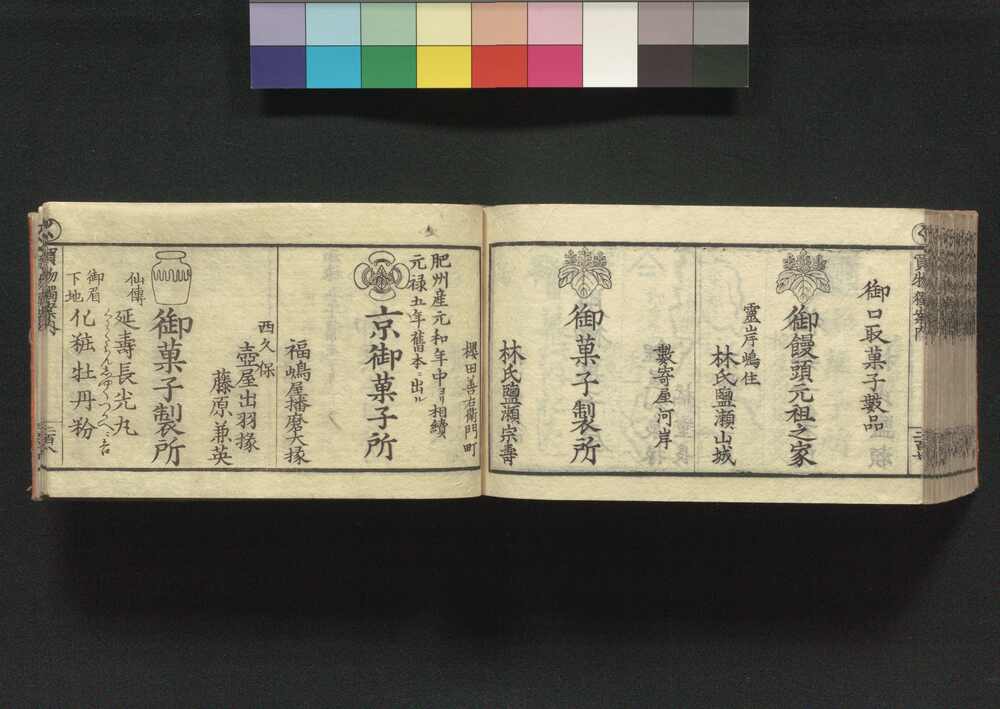 御口取菓子數品
御饅頭元祖之家
靈岸嶋住
林氏鹽瀬山城
數寄屋河岸
御菓子製所
林氏鹽瀬宗壽
櫻田善右衛門町
肥州産元和年中ヨリ相續
元禄五年舊本ニ出ル
京御菓子所
福嶋屋播磨大掾
西久保
壺屋出羽掾
藤原兼英
御菓子製所
仙傳
延壽長光丸
御眉
下地
化粧牡丹粉
買物獨案内
二百八